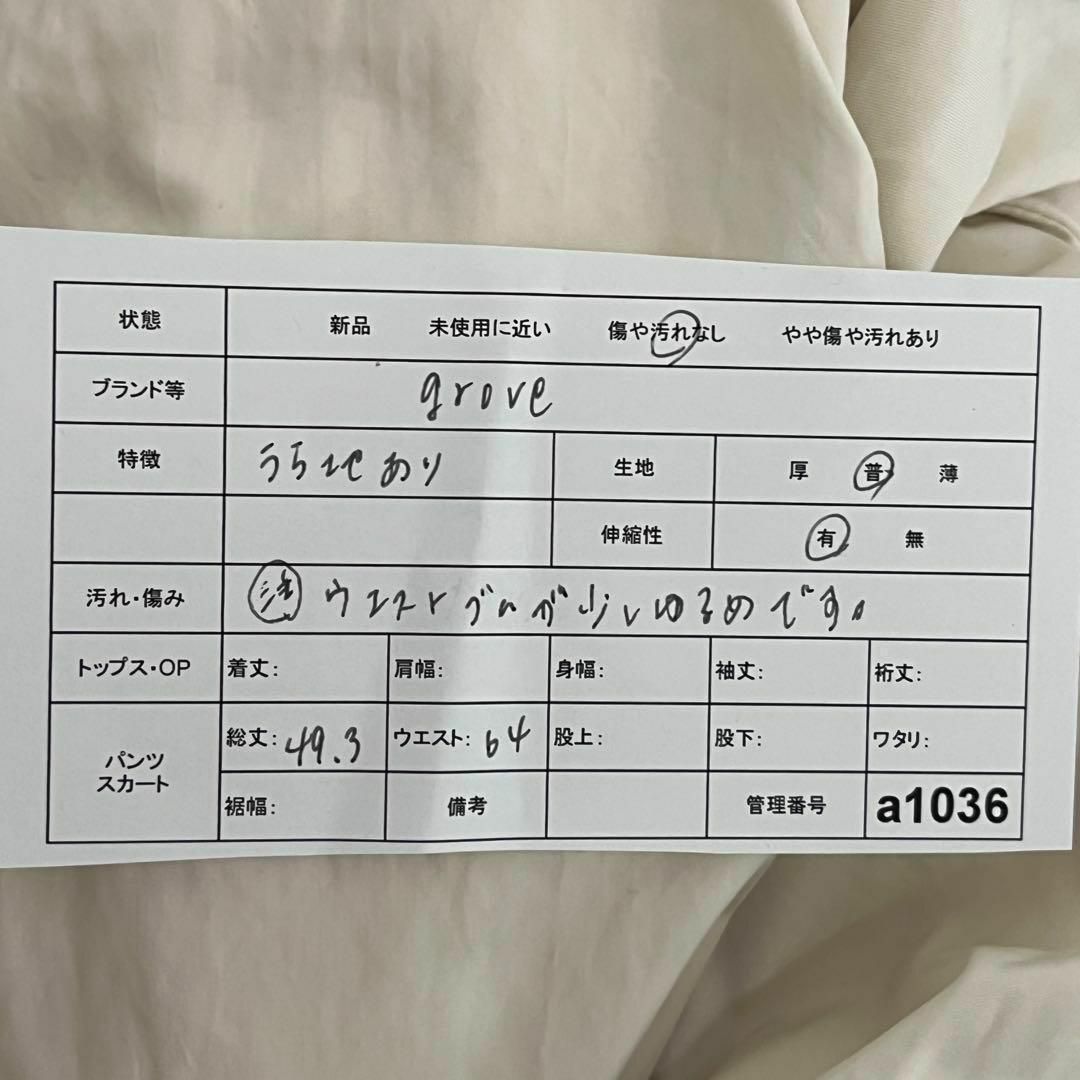 状態 新品 未使用に近い 傷や汚れなし やや傷や汚れあり
ブランド等 grove
特徴 うら地あり 生地 厚 普 薄
伸縮性 有 無
汚れ・傷み 注 ウエストゴムが少しゆるめです。
トップス・OP 着丈: 肩幅: 身幅: 袖丈: 裄丈:
パンツ スカート 総丈: 49.3 ウエスト: 64 股上: 股下: ワタリ:
裾幅: 備考 管理番号 a1036